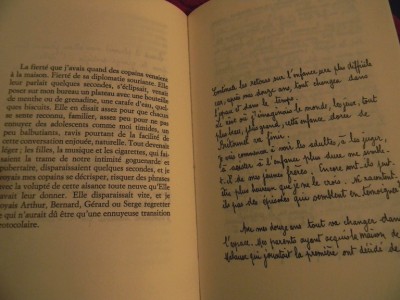 La fierté que j'avais quand des copains venaient
à la maison. Fierté de sa diplomatie souriante. Elle
leur parlait quelques secondes, s'éclipsait, venait
poser sur mon bureau un plateau avec une bouteille
de menthe ou de grenadine, une carafe d'eau, quel-
ques biscuits. Elle en disait assez pour que chacun
se sente reconnu, familier, assez peu pour ne pas
ennuyer des adolescents comme moi timides, un
peu balbutiants, ravis pourtant de la facilité de
cette conversation enjouée, naturelle. Tout devenait
léger : les filles, la musique et les cigarettes, qui fai-
saient la trame de notre intimité goguenarde et
pubertaire, disparaissaient quelques secondes, et je
voyais mes copains se décrisper, risquer des phrases
avec la volupté de cette aisance toute neuve qu'Elle
avait leur donner. Elle disparaissait vite, et je
voyais Arthur, Bernard, Gérard ou Serge regretter
ce qui n'aurait dû être qu'une ennuyeuse transition
protocolaire.
retour sur l'enfance plus difficile
car, après ma douze ans, tout changea dans
l'espace et dans le temps.
j'imaginais le monde, les jeux, tout
plus beau, plus grand, cette enfance dorée de
Je vais commencer à voir les adultes, à les juger,
à savoir si l'enfance plus dure me
t-il de mes jeunes frères. Erreur
plus heureux que je ne le crois. Ils racontent
des épisodes qui semblent en témoigner
ma douze ans tout va changer dans
l'espace. Mes parents ayant acquis la maison de
qui jouxtait la première ont décidé de